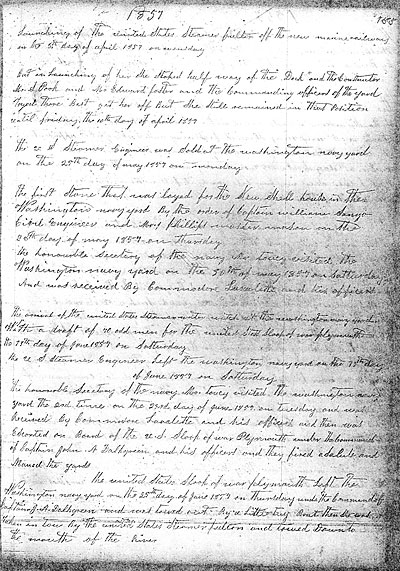 1857
165
Launching of the united States Steamer fulton off the new marine railway
in the day of april 1857 on wensday
But in Launching of her She Stoped half way of the Dock and the Constructor
Mr S. Pook and Mr Edward foster and the Commanding officers of the yard
Tryed there Best get her off But She Still remained in that Position
until friday, the 10th day of april 1857
the u S Steamer Engineer was Sold at the washington navy yard
on the 25th day of may 1857 on monday
the first Stone that was layed for the New Shell house in the
Washington navy yard By the order of Captain william Sanger
Civil Engineer and Mors Phillips master mason on the
28th day of may 1857 on Thursday
the honourable Secetary of the navy Mr Toucy visited the
Washington navy yard on the 30th of may 1857 on Satterday
And was received By Commodore Lavalette and his officers
The arrival of the united States Steamer water witch at the washington navy yard
With a draft of odd men for the united States Sloop of war plymouth
the 13th day of june 1857 on Satturday
the u S Steamer Engineer Left the washington navy yard on the 13th day
of June 1857 on Satturday
The honourable, Secetary of the navy Mr Toucy visited the washington navy
yard the 2nd time on the 23rd day of june 1857 on tuesday and was
Received by Commodore Lavalette and his officers and then was
Escorted on Board of the u S Sloop of war Plymouth under the Command
of Captain John A Dalhgreen and his officers and they fired a Salute and
Maned the yards
the united States Sloop of war plymouth Left the
Washington navy yard on the 25th day of June 1857 on thursday under the Command of
Captain J. A Dalhgreen and was towed out By a Little tug Boat then She was
taken in tow by the united States Steamer fulton and towed Down to
the mouth of the River